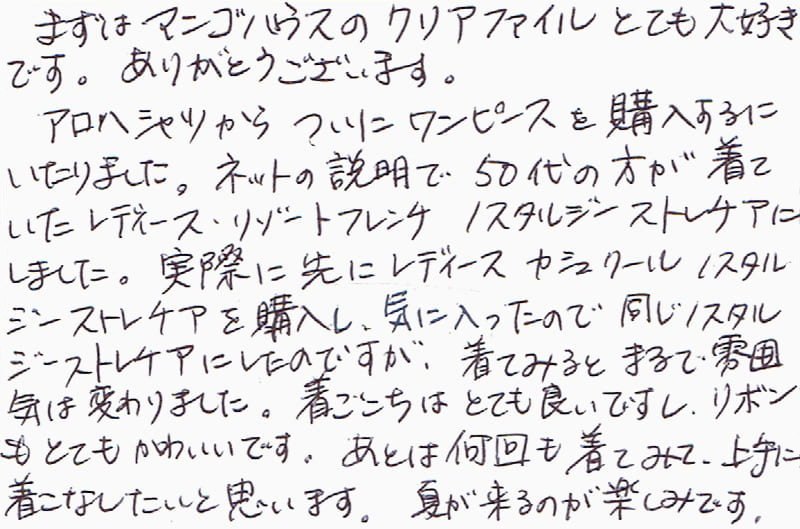 まずはマンゴハウスのクリアファイルとても大好き
です。ありがとうございます。
アロハシャツからついにワンピースを購入するに
いたりました。ネットの説明で50代の方が着て
いたレディース・リゾートフレンチノスタルジーストレチアに
しました。実際に先にレディースカシュクールノスタル
ジーストレチアを購入し、気に入ったので同じノスタル
ジーストレチアにしたのですが、着てみるとまるで雰囲
気は変わりました。着ごこちはとても良いですし、リボン
もとてもかわいいです。あとは何回も着てみて、上手に
着こなしたいと思います。夏が来るのが楽しみです。